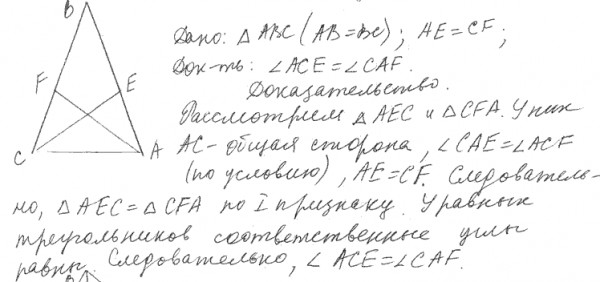 B
Дано: △ ABC (AB=BC); AE=CF;
Док-ть: ∠ACE=∠CAF.
F E
Доказательство.
Рассмотрим △ AEC и △CFA. У них
C A
AC- общая сторона, ∠CAE=∠ACF
(по условию), AE=CF. Следователь-
но, △ AEC=△CFA по I признаку. У равных
треугольников соответственные углы
равны. Следовательно, ∠ ACE=∠CAF.